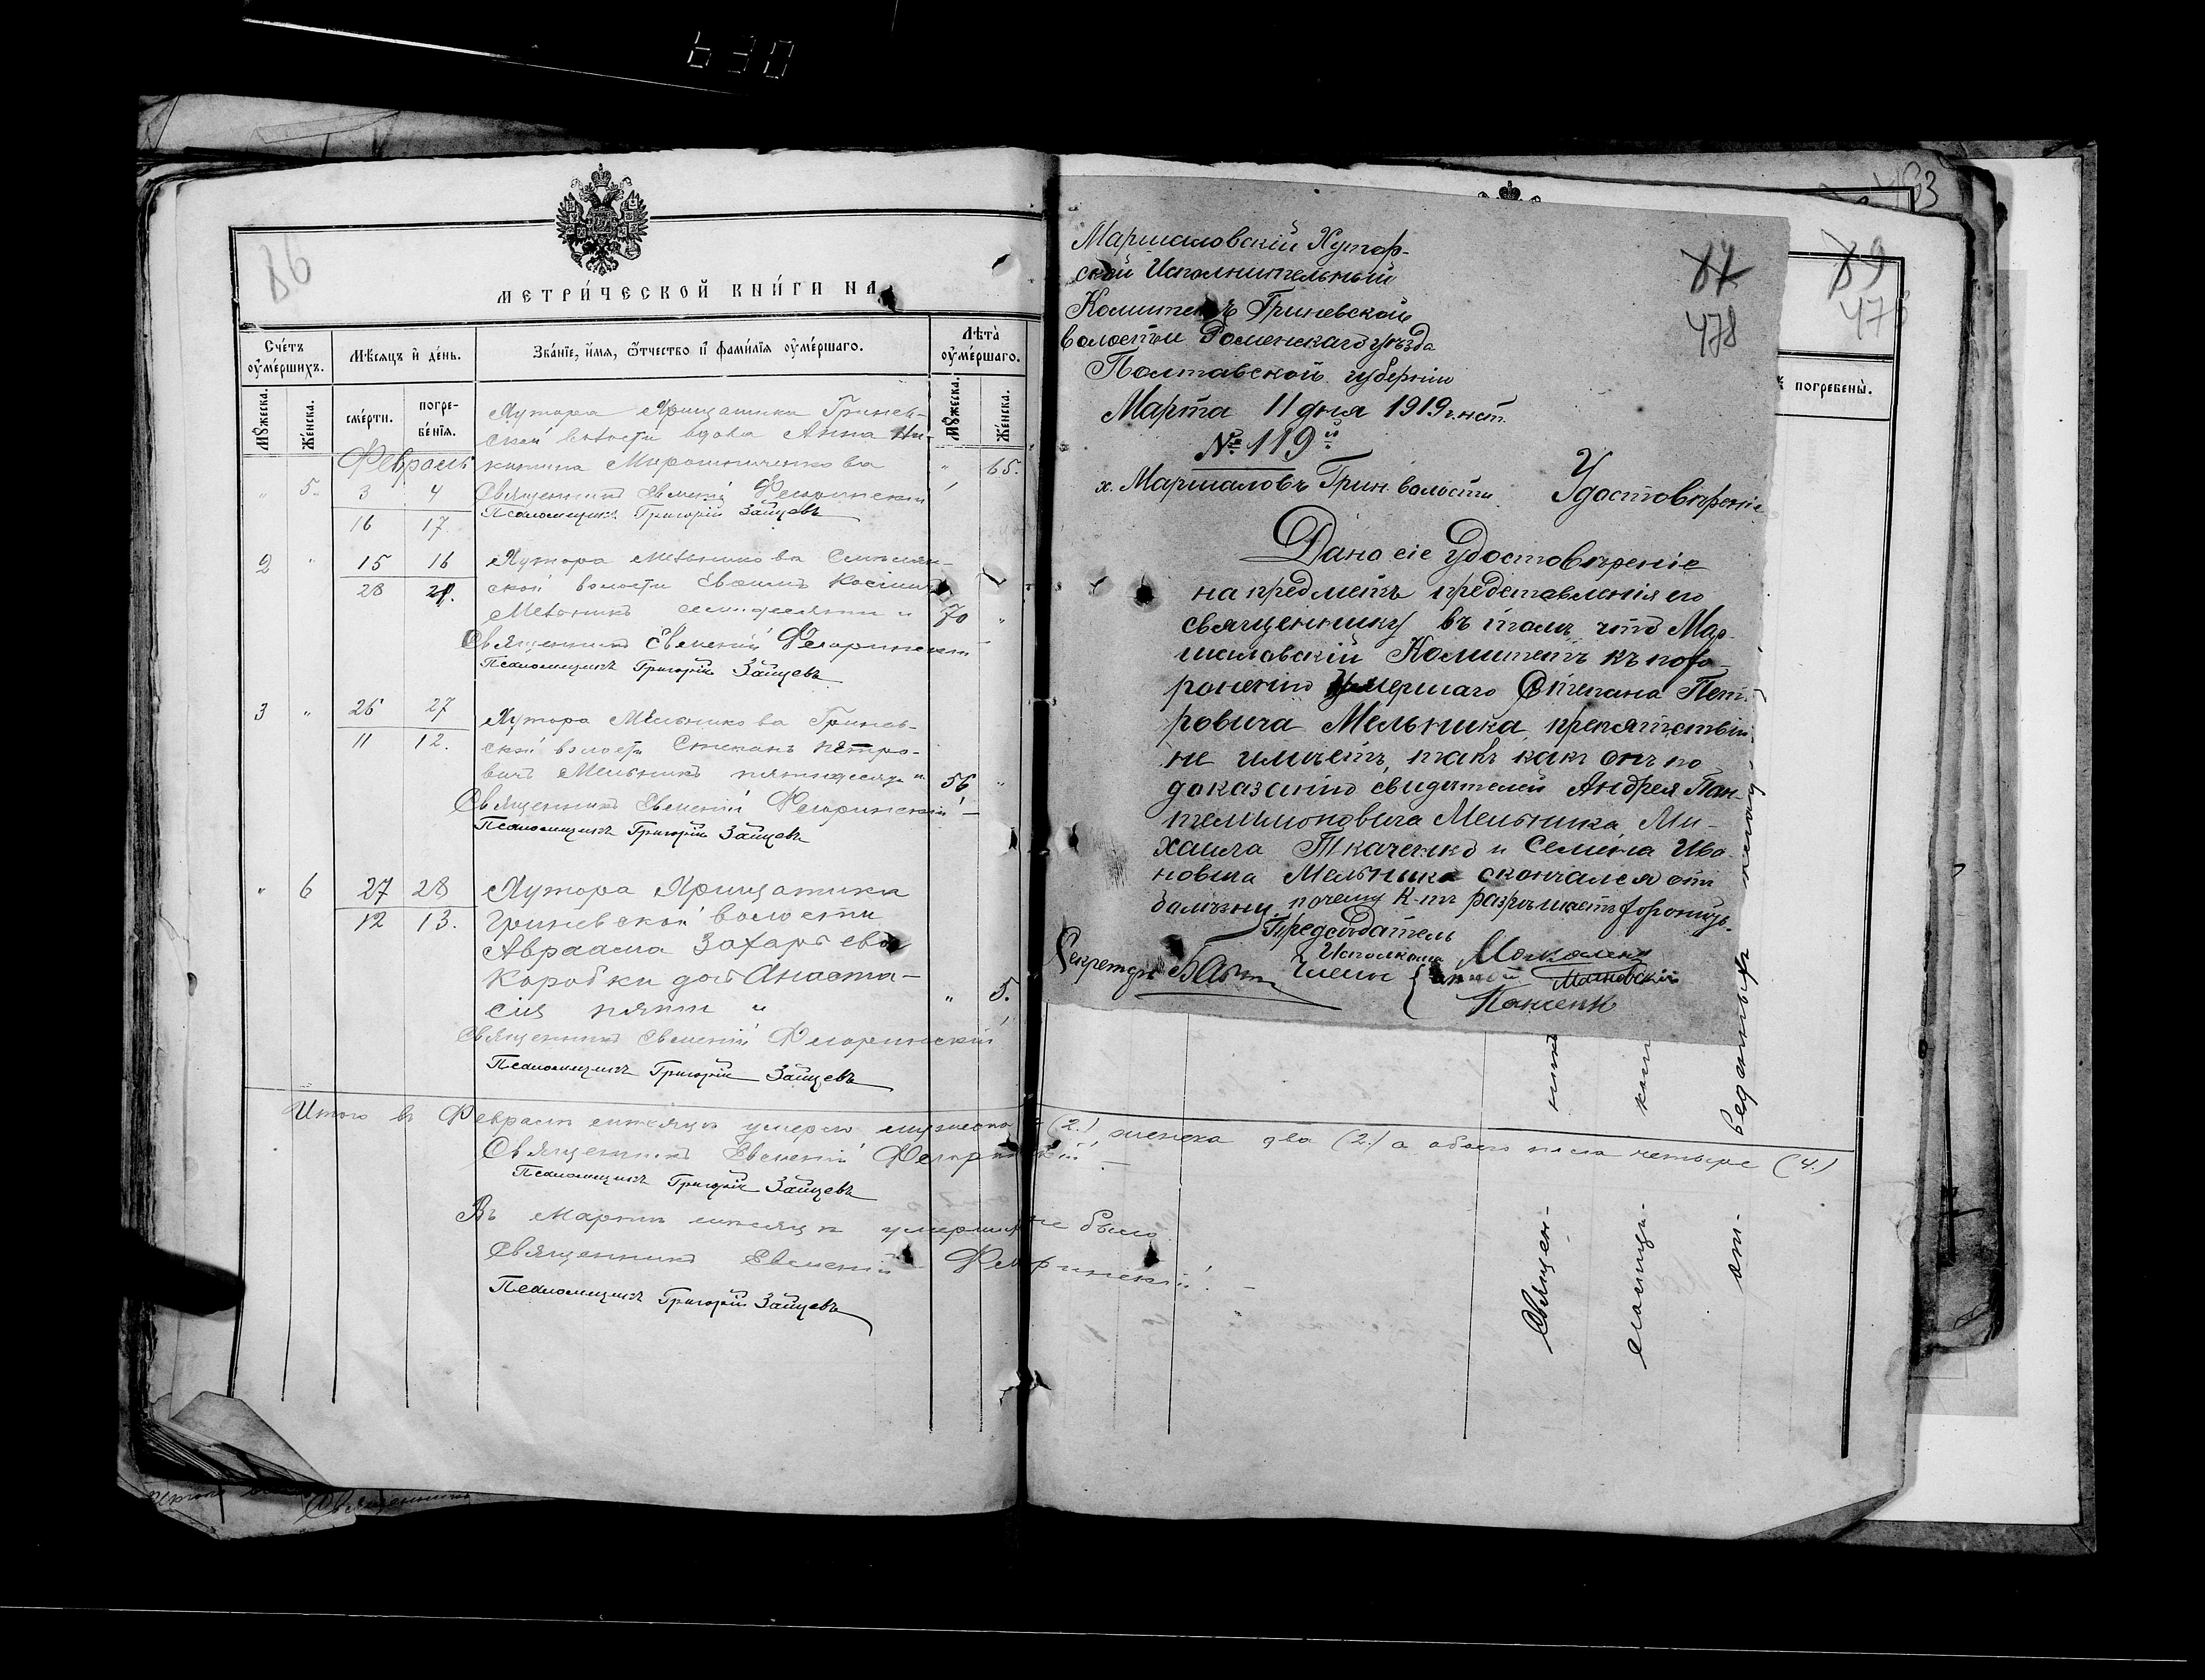 630
86
МЕТРИ́ЧЕСКОЙ КНИ́ГИ НА
Сче́тъ оу҆ме́ршихъ.
Мѣ́сяцъ и҆ де́нь.
Зва́нїе, и҆́мя, ѻ҆́тчество и҆ фами́лїя оу҆ме́ршаго.
Лѣ́та оу҆ме́ршаго.
Мꙋ́жеска.
Же́нска.
сме́рти.
погре-
бе́нїя.
Мꙋ́жеска.
Же́нска.
Хутора Хрищатики Гринев-
ской волости вдова Анна Ни-
Февраль
китина Мирошниченкова " 65.
" 5. 3 4 Священникъ Евменій
16 17. Псаломщикъ Григорій Зайцевъ
2 " 15 16 Хутора Мельникова
28 ской волости
Мельникъ семидесяти и 70 "
Священникъ Евменій
Псаломщикъ Григорій Зайцевъ
3 " 26 27 Хутора Мельникова Гринев-
11 12. ской волости Стефанъ Петро-
вичъ Мельникъ пятидесяти 56 "
Священникъ Евменій
Псаломщикъ Григорій Зайцевъ
" 6 27 28 Хутора Хрищатики
12 13. Гриневской волости
Авраама Захарьева
Коробки дочь Анаста-
сія пяти " " 5.
Священникъ Евменій
Псаломщикъ Григорій Зайцевъ
Итого въ Февралѣ мѣсяцѣ умерло мужеска (2.) женска два (2.) а обоего пола четыре (4.)
Священникъ Евменій
Псаломщикъ Григорій Зайцевъ
Въ Мартѣ мѣсяцѣ умершихъ не было
Священникъ Евменій
Псаломщикъ Григорій Зайцевъ
Маршаловскій Хутор-
ской Исполнительный
Комитетъ Гриневской
волости Роменскаго уѣзда
Полтавской губерніи
Марта 11 дня 1919 г. н ст.
№ 119й
х. Маршаловъ Грин. волости
87
478
Удостовѣреніе
Дано сіе удостовѣреніе
на предметъ представленія его
священнику въ томъ что Мар-
шаловскій Комитетъ къ похо-
роненію умершаго Степана Пет-
ровича Мельника препятствій
не имѣетъ, такъ какъ онъ по
доказанію свидѣтелей Андрея Пан-
телимоновича Мельника, Ми-
хаила Ткаченко и Семена Ива-
новича Мельника скончался отъ
болѣзни почему К-тъ разрѣшаетъ хоронить.
Предсѣдатель
Исполкома
Секретарь
Члены
89
погребены̀.
Священ-
никъ
ломщи-